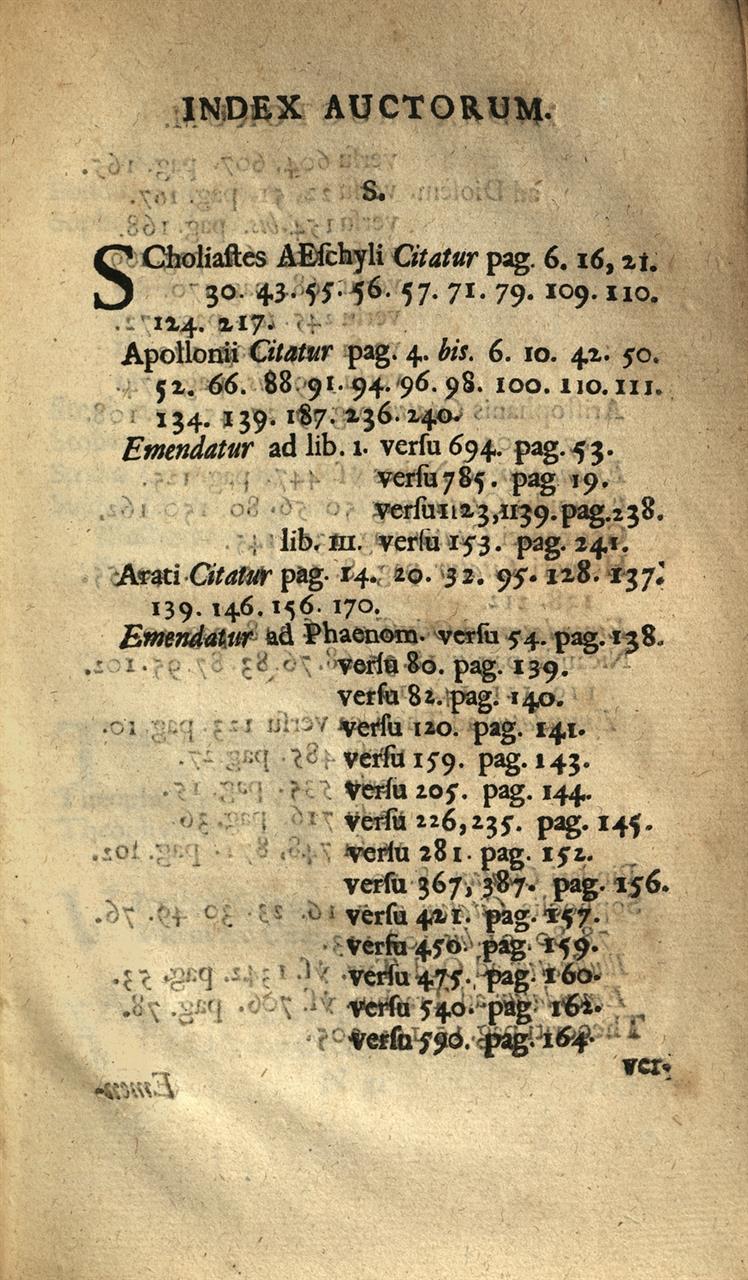 INDEX AUCTORUM.
S.
SCholiaſtes AEſchyli Citatur pag. 6. 16, 21.
30. 43. 55. 56. 57. 71. 79. 109. 110.
124. 217.
Apollonii Citatur pag. 4. bis. 6. 10. 42. 50.
52. 66. 88. 91. 94. 96. 98. 100. 110. 111.
134. 139. 187. 236. 240.
Emendatur ad lib. 1. verſu 694. pag. 53.
verſu 785. pag 19.
verſu 1123, 1139. pag. 238.
lib. III. verſu 153. pag. 241.
Arati Citatur pag. 14. 20. 32. 95. 128. 137.
139. 146. 156. 170.
Emendatur ad Phaenom. verſu 54. pag. 138.
verſu 80. pag. 139.
verſu 82. pag. 140.
verſu 120. pag. 141.
verſu 159. pag. 143.
verſu 205. pag. 144.
verſu 226, 235. pag. 145.
verſu 281. pag. 152.
verſu 367, 387. pag. 156.
verſu 421. pag. 157.
verſu 450. pag. 159.
verſu 475. pag. 160.
verſu 540. pag. 162.
verſu 590. pag. 164.
ver-